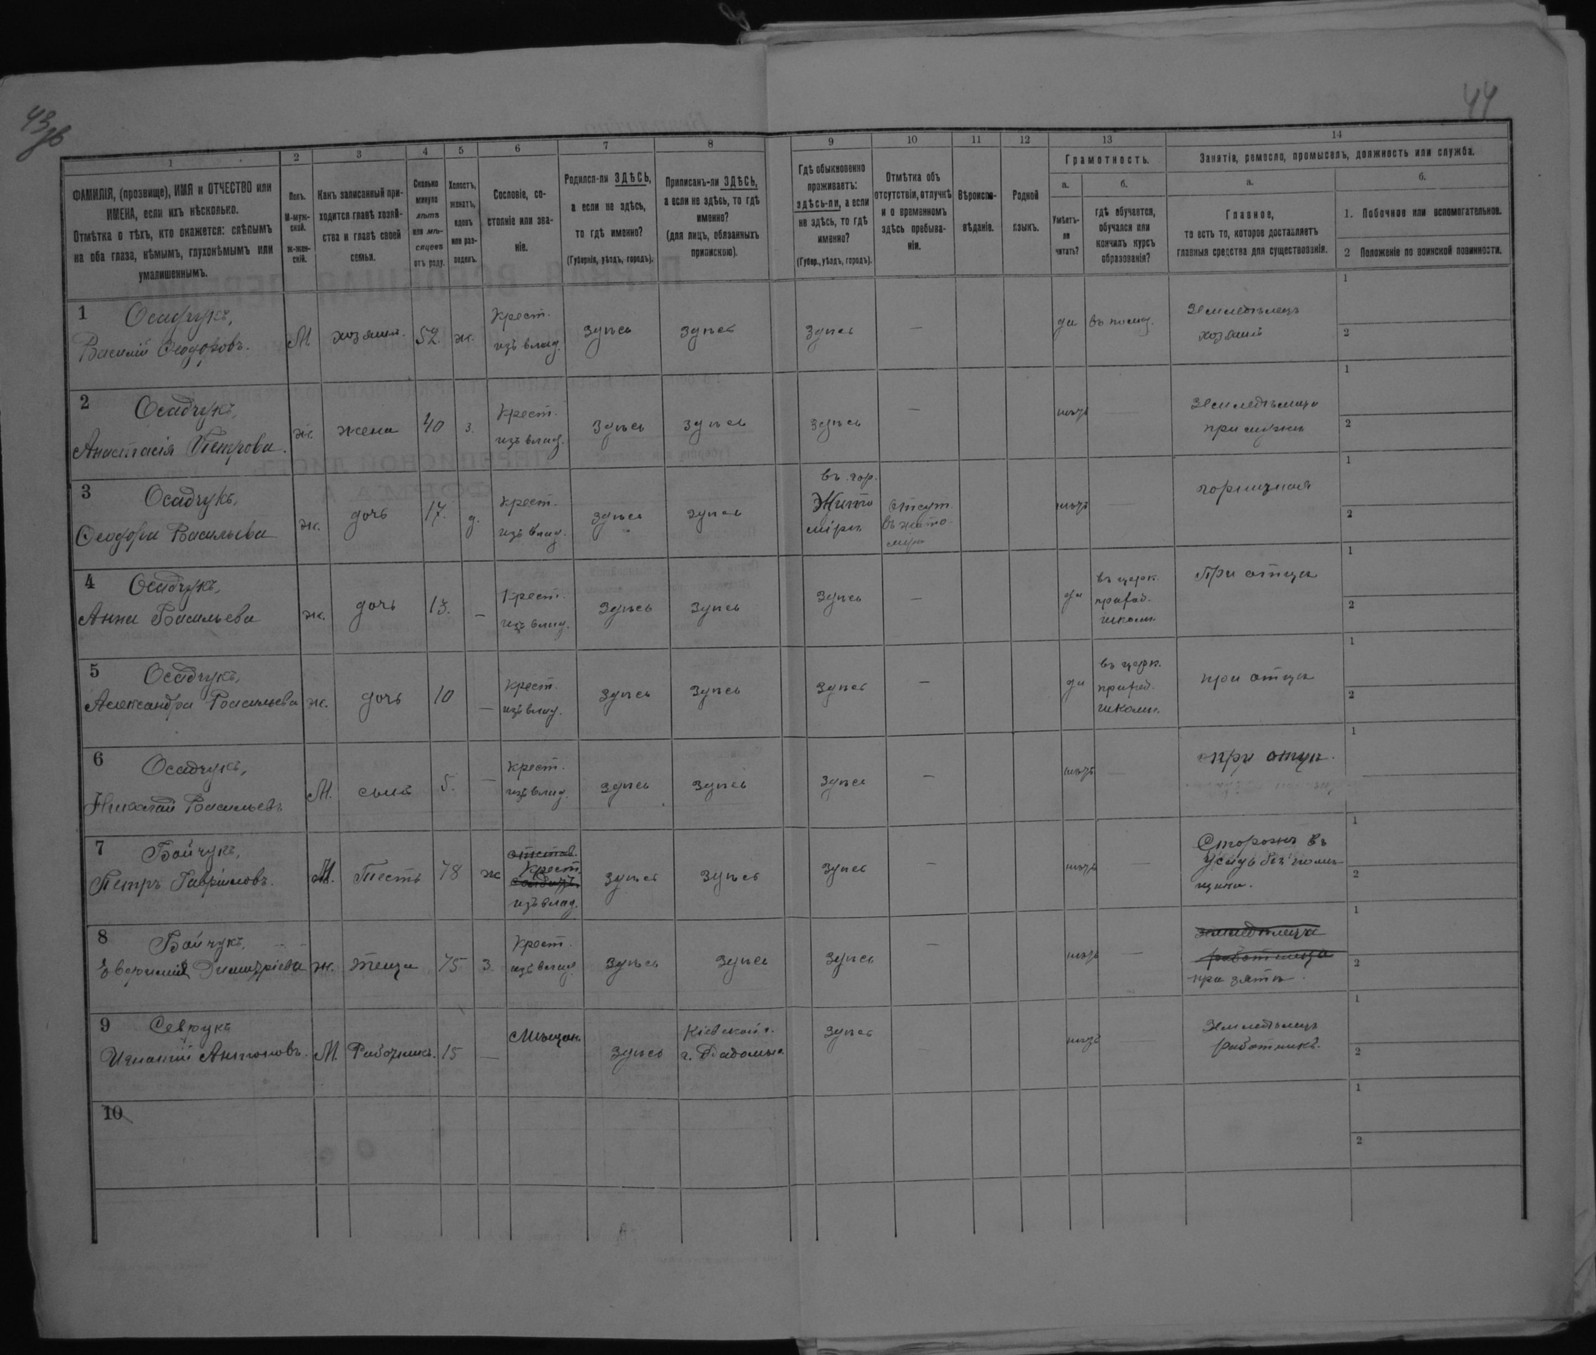 43об
44
1 2 3 4 5 6 7 8 9 10 11 12 13 14
ФАМИЛІЯ, (прозвище), ИМЯ и ОТЧЕСТВО или
ИМЕНА, если ихъ нѣсколько.
Отмѣтка о тѣхъ, кто окажется: слѣпымъ
на оба глаза, нѣмымъ, глухонѣмымъ или
умалишеннымъ.
Полъ.
М-муж-
ской.
Ж-жен-
скій.
Какъ записанный при-
ходится главѣ хозяй-
ства и главѣ своей
семьи.
Сколько
минуло
лѣтъ
или мѣ-
сяцевъ
отъ роду.
Холостъ,
женатъ,
вдовъ
или раз-
веденъ.
Сословіе, со-
стояніе или зва-
ніе.
Родился-ли ЗДѢСЬ,
а если не здѣсь,
то гдѣ именно?
(Губернія, уѣздъ, городъ).
Приписанъ-ли ЗДѢСЬ,
а если не здѣсь, то гдѣ
именно?
(для лицъ, обязанныхъ
припискою).
Гдѣ обыкновенно
проживаетъ:
здѣсь-ли, а если
не здѣсь, то гдѣ
именно?
(Губер., уѣздъ, городъ).
Отмѣтка объ
отсутствіи, отлучкѣ
и о временномъ
здѣсь пребыва-
ніи.
Вѣроиспо-
вѣданіе.
Родной
языкъ.
Грамотность.
а.
Умѣетъ-
ли
читать?
б.
гдѣ обучается,
обучался или
кончилъ курсъ
образованія?
Занятіе, ремесло, промыселъ, должность или служба.
а.
Главное,
то есть то, которое доставляетъ
главныя средства для существованія.
б.
1. Побочное или вспомогательное.
2 Положеніе по воинской повинности.
1 Осадчукъ,
Василій Ѳеодоровъ. М хозяинъ. 52. ж. Крест. изъ влад. Здѣсь Здѣсь Здѣсь — да въ полку. Земледѣлецъ хозяинъ 1 2
2 Осадчукъ,
Анастасія Петрова. ж жена 40 з. Крест. изъ влад. Здѣсь Здѣсь Здѣсь — нѣтъ — Земледѣлица при мужѣ 1 2
3 Осадчукъ,
Ѳеодора Васильева ж. дочь 17. д. Крест. изъ влад. Здѣсь Здѣсь въ гор. Житомірѣ отсут въ Житомирѣ нѣтъ — горничная 1 2
4 Осадчукъ,
Анна Васильева ж. дочь 13. — Крест. изъ влад. Здѣсь Здѣсь Здѣсь — да въ церк. приход. школѣ При отцѣ 1 2
5 Осадчукъ,
Александра Васильева ж. дочь 10 — Крест. изъ влад. Здѣсь Здѣсь Здѣсь — да въ церк. приход. школѣ. при отцѣ 1 2
6 Осадчукъ,
Николай Васильевъ М. сынъ 5. — Крест. изъ влад. Здѣсь Здѣсь Здѣсь — нѣтъ — при отцѣ. 1
7 Бойчукъ,
Петръ Гаврііловъ. М. Тесть 78 ж отстав. Крест. солдатъ изъ влад. Здѣсь Здѣсь Здѣсь — нѣтъ — Сторожъ въ 1 2
8 Бойчукъ,
Евфимія Димитріева ж. Теща 75 з. Крест. изъ влад. Здѣсь Здѣсь Здѣсь — нѣтъ — земледѣлица работница при зятѣ 1 2
9 Севрукъ
Игнатій Антоновъ. М Работникъ. 15 — Мѣщан. Здѣсь Кіевской г. г. Радомысл Здѣсь нѣтъ Земледѣлецъ работникъ. 1 2
10 1 2